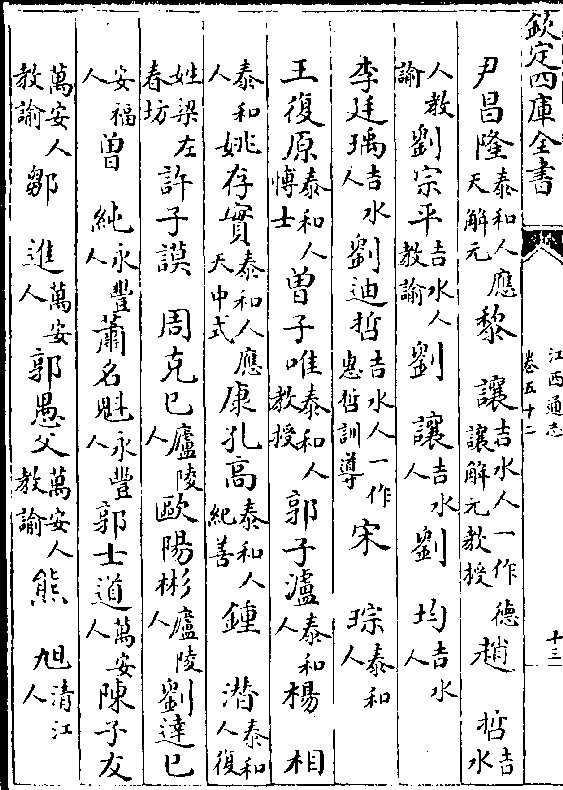 欽定四庫全書
江西通志
卷五十二
十三
尹昌隆泰和人應天解元黎讓吉水人一作德讓解元教授趙哲吉水
人教諭劉宗平吉水人教諭劉讓吉水人劉均吉水人
李廷瑀吉水人劉迪哲吉水人一作惠哲訓導宋琮泰和人
王復原泰和人博士曽子唯泰和人教授郭子瀘泰和人楊相
泰和人姚存實泰和人應天中式康孔高泰和人紀善鍾潛泰和人復
姓梁左春坊許子謨周克巳廬陵人歐陽彬廬陵人劉達巳
安福人曽純永豐人蕭名魁永豐人郭士道萬安人陳子友
萬安人教諭鄒進萬安人郭愚父萬安人教諭熊旭清江人